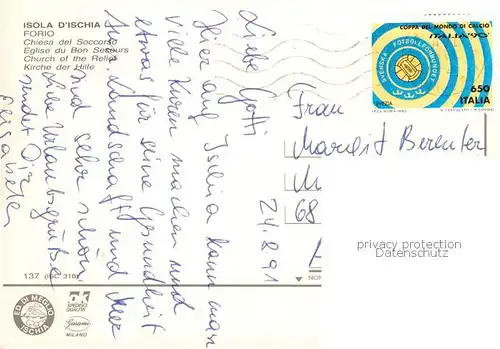 ISOLA D'ISCHIA
FORIO
Chiesa del Soccorso
Eglise du Bon Secours
Church of the Relief
Kirche der Hilfe
Liebe Gotti
24.8.91
Hier auf Ischia kann man
viele Kuren machen und
etwas für seine Gesundheit
tun. Landschaft und Meer
sind sehr schön.
Liebe Urlaubsgrüße
sendet Dir
Elisabeth
COPPA DEL MONDO DI CALCIO
ITALIA '90
SVENSKA FOTBOLLFÖRBUNDET
SVEZIA
650
ITALIA
Frau
Margit Berenter
M
68
privacy protection
Datenschutz
137
ED. DI MEGLIO
ISCHIA
Garami
MILANO